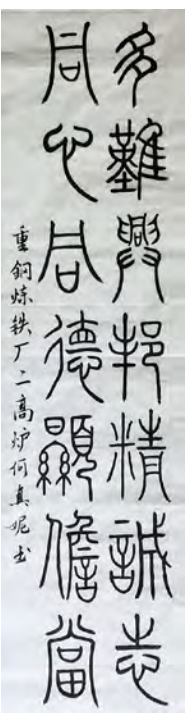 多難興邦精誠志
同心同德顯擔當
重鋼炼铁厂二高炉何真妮书